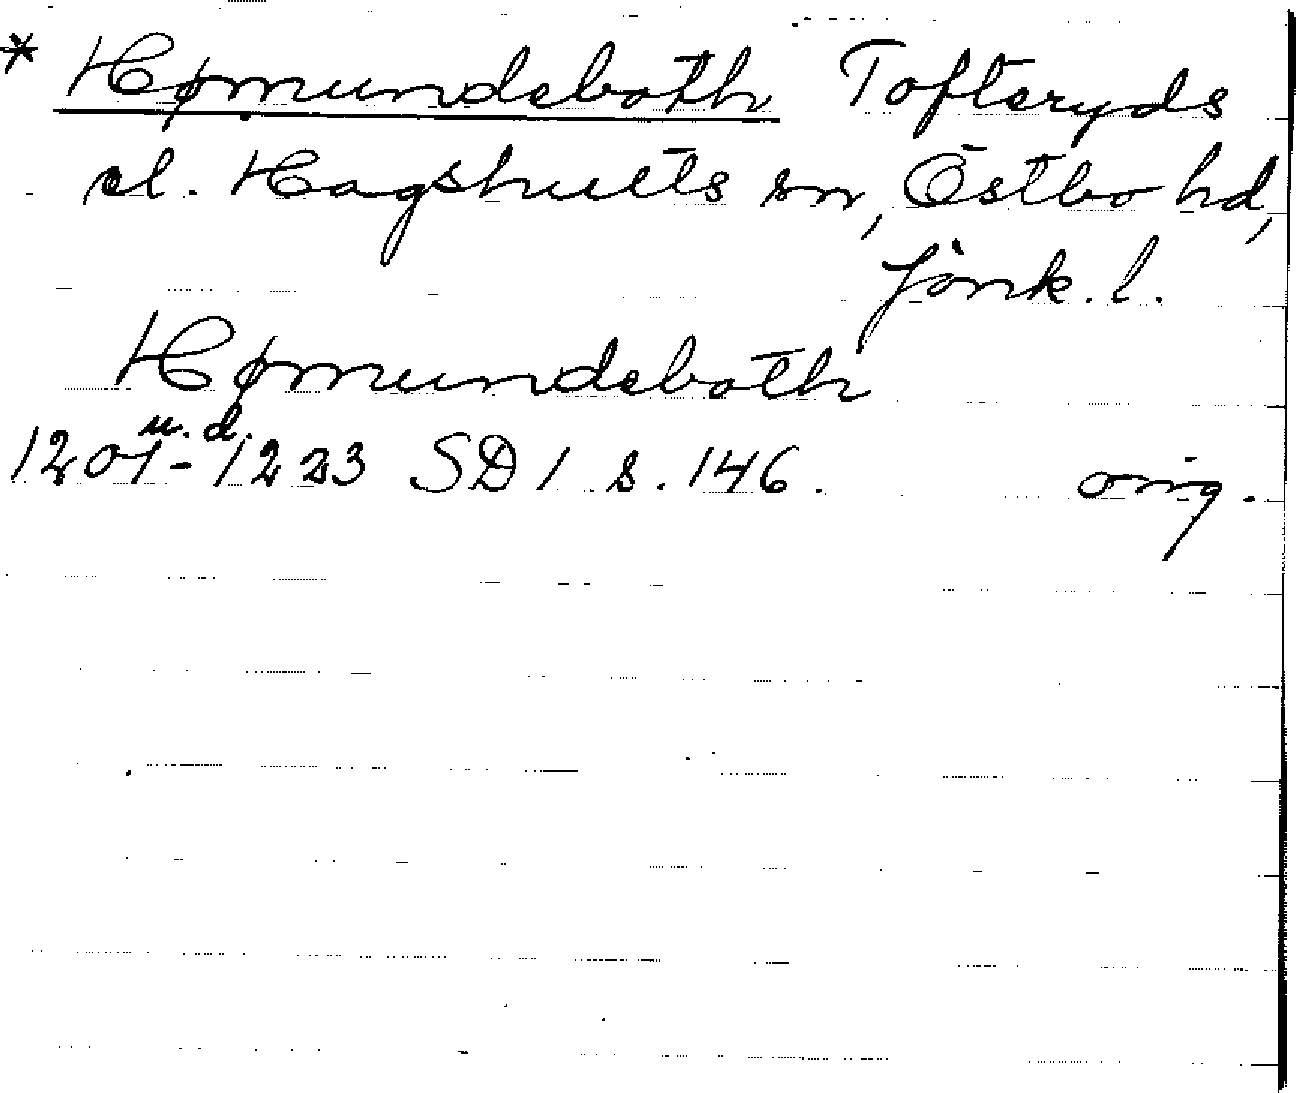 * Hømundeboth Tofteryds
el. Hagshults sn, Östbo hd,
Jönk. l.
Hømundeboth
u. d.
1207-1223 SD 1 s. 146. orig.